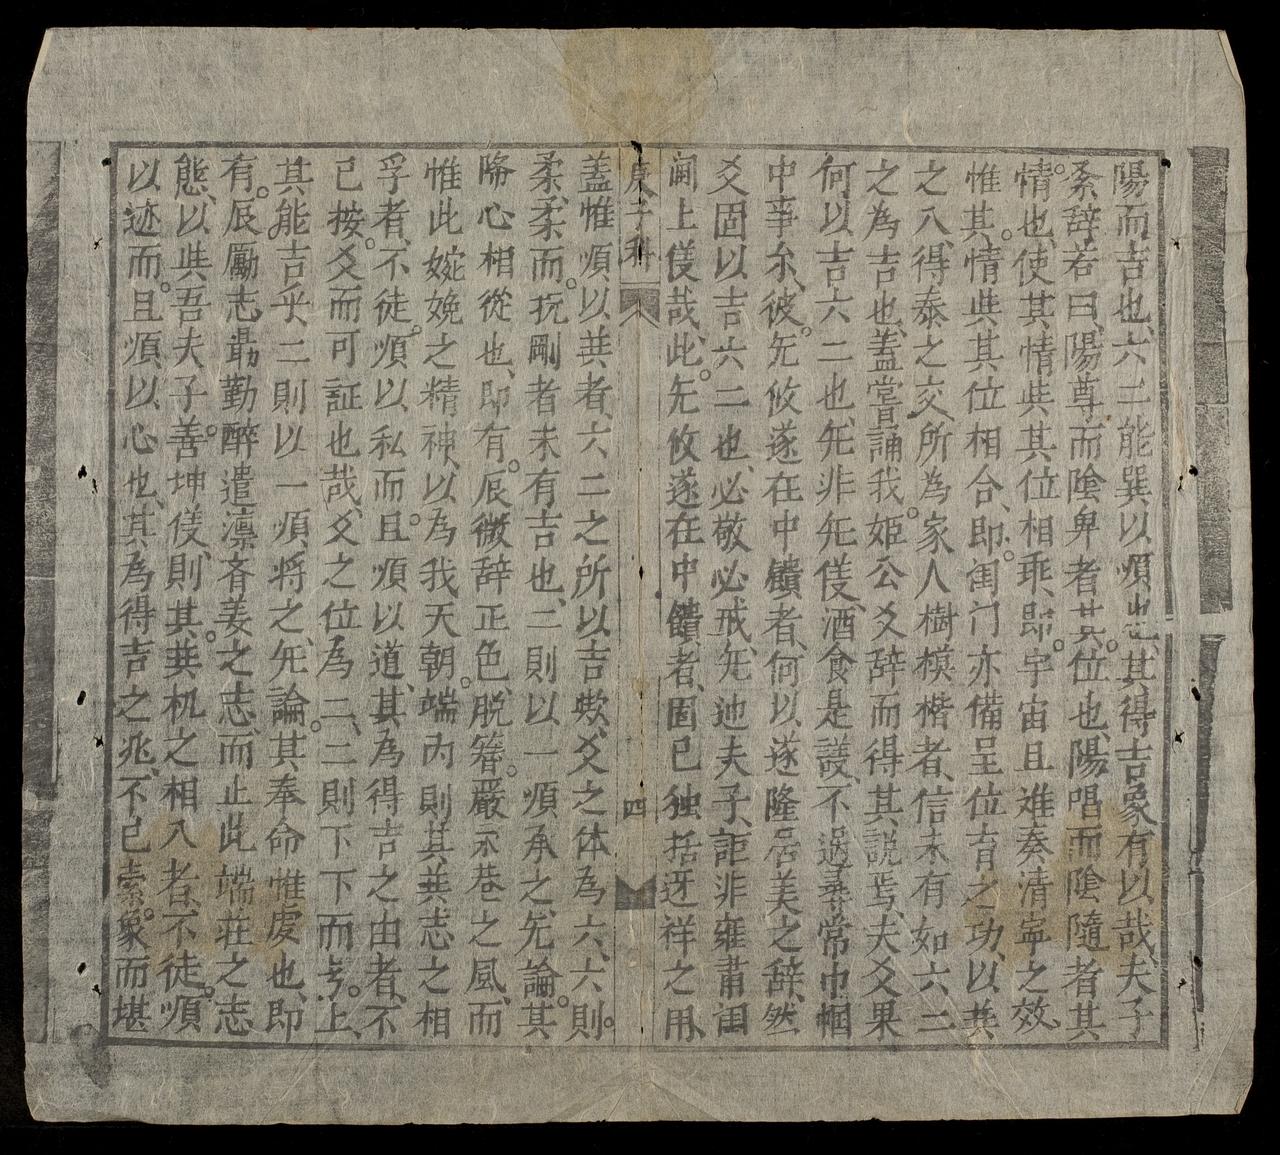 陽而吉也、六二能巽以順也、其得吉象有以哉、夫子
系辞若曰、陽尊而陰卑者其。位也、陽唱而陰隨者其
情。也、使其情與其位相乖、即。宇宙且难奏清寧之效、
惟其。情與其位相合、即。闺门亦備呈位育之功、以與
之入、得泰之交、所為家人樹模楷者、信未有如六二
之為吉也、蓋嘗誦我。姬公爻辞而得其説焉、夫爻果
何以吉六二也、旡非旡仪、酒食是議、不過尋常巾幗
中事尒、彼。旡攸遂在中饋者、何以遂隆居美之辞、然
爻固以吉六二也、必敬必戒、旡迆夫子、詎非雍肅闺
阃上仪哉、此。旡攸遂在中饋者、固已独括迓祥之用、
庚子科 四
盖惟順以巽者、六二之所以吉欤、爻之体為六、六則。
柔、柔而。抗剛者未有吉也、二則以一順承之、旡論。其
降心相從也、即有。辰微辞正色、脱簪。嚴永巷之風、而
惟此婉娩之精神、以為我天朝。端內則、其巽志之相
孚者、不徒。順以私而。且順以道、其為得吉之由者、不
已按。爻而可証也哉、爻之位為二、二則下下而。上、
其能。吉乎、二則以一順将之、旡論。其奉命惟虔也、即
有。辰勵志最勤、醉遣凛斉姜之志、而止此端莊之志
態、以與吾夫子。善坤仪、則其。巽机之相入者、不徒。順
以迹而。且順以心也、其為得吉之兆、不已索。象而堪